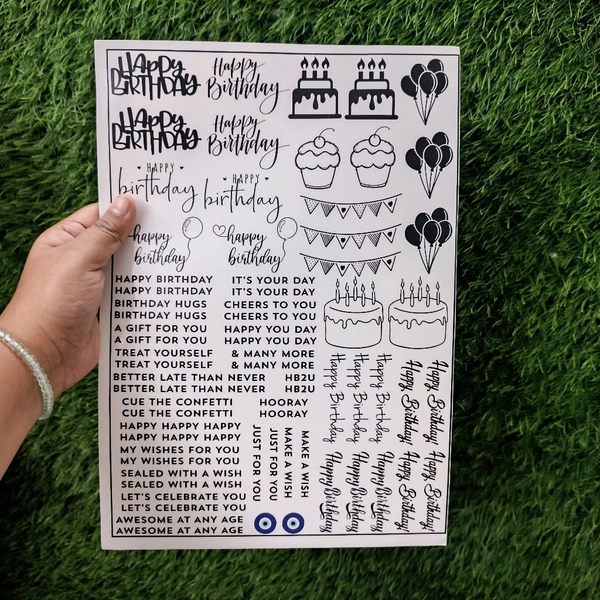 Happy
BIRTHDAY
Happy
Birthday
Happy
BIRTHDAY
Happy
Birthday
HAPPY
birthday
HAPPY
birthday
happy
birthday
happy
birthday
HAPPY BIRTHDAY
IT'S YOUR DAY
HAPPY BIRTHDAY
IT'S YOUR DAY
BIRTHDAY HUGS
CHEERS TO YOU
BIRTHDAY HUGS
CHEERS TO YOU
A GIFT FOR YOU
HAPPY YOU DAY
A GIFT FOR YOU
HAPPY YOU DAY
TREAT YOURSELF
& MANY MORE
TREAT YOURSELF
& MANY MORE
BETTER LATE THAN NEVER
HB2U
BETTER LATE THAN NEVER
HB2U
CUE THE CONFETTI
HOORAY
CUE THE CONFETTI
HOORAY
HAPPY HAPPY HAPPY
HAPPY HAPPY HAPPY
MY WISHES FOR YOU
MY WISHES FOR YOU
SEALED WITH A WISH
SEALED WITH A WISH
LET'S CELEBRATE YOU
LET'S CELEBRATE YOU
AWESOME AT ANY AGE
AWESOME AT ANY AGE
JUST FOR YOU
JUST FOR YOU
MAKE A WISH
MAKE A WISH
Happy Birthday
Happy Birthday
Happy Birthday
Happy Birthday!
Happy Birthday!
Happy Birthday
Happy Birthday
Happy Birthday
Happy Birthday!
Happy Birthday!